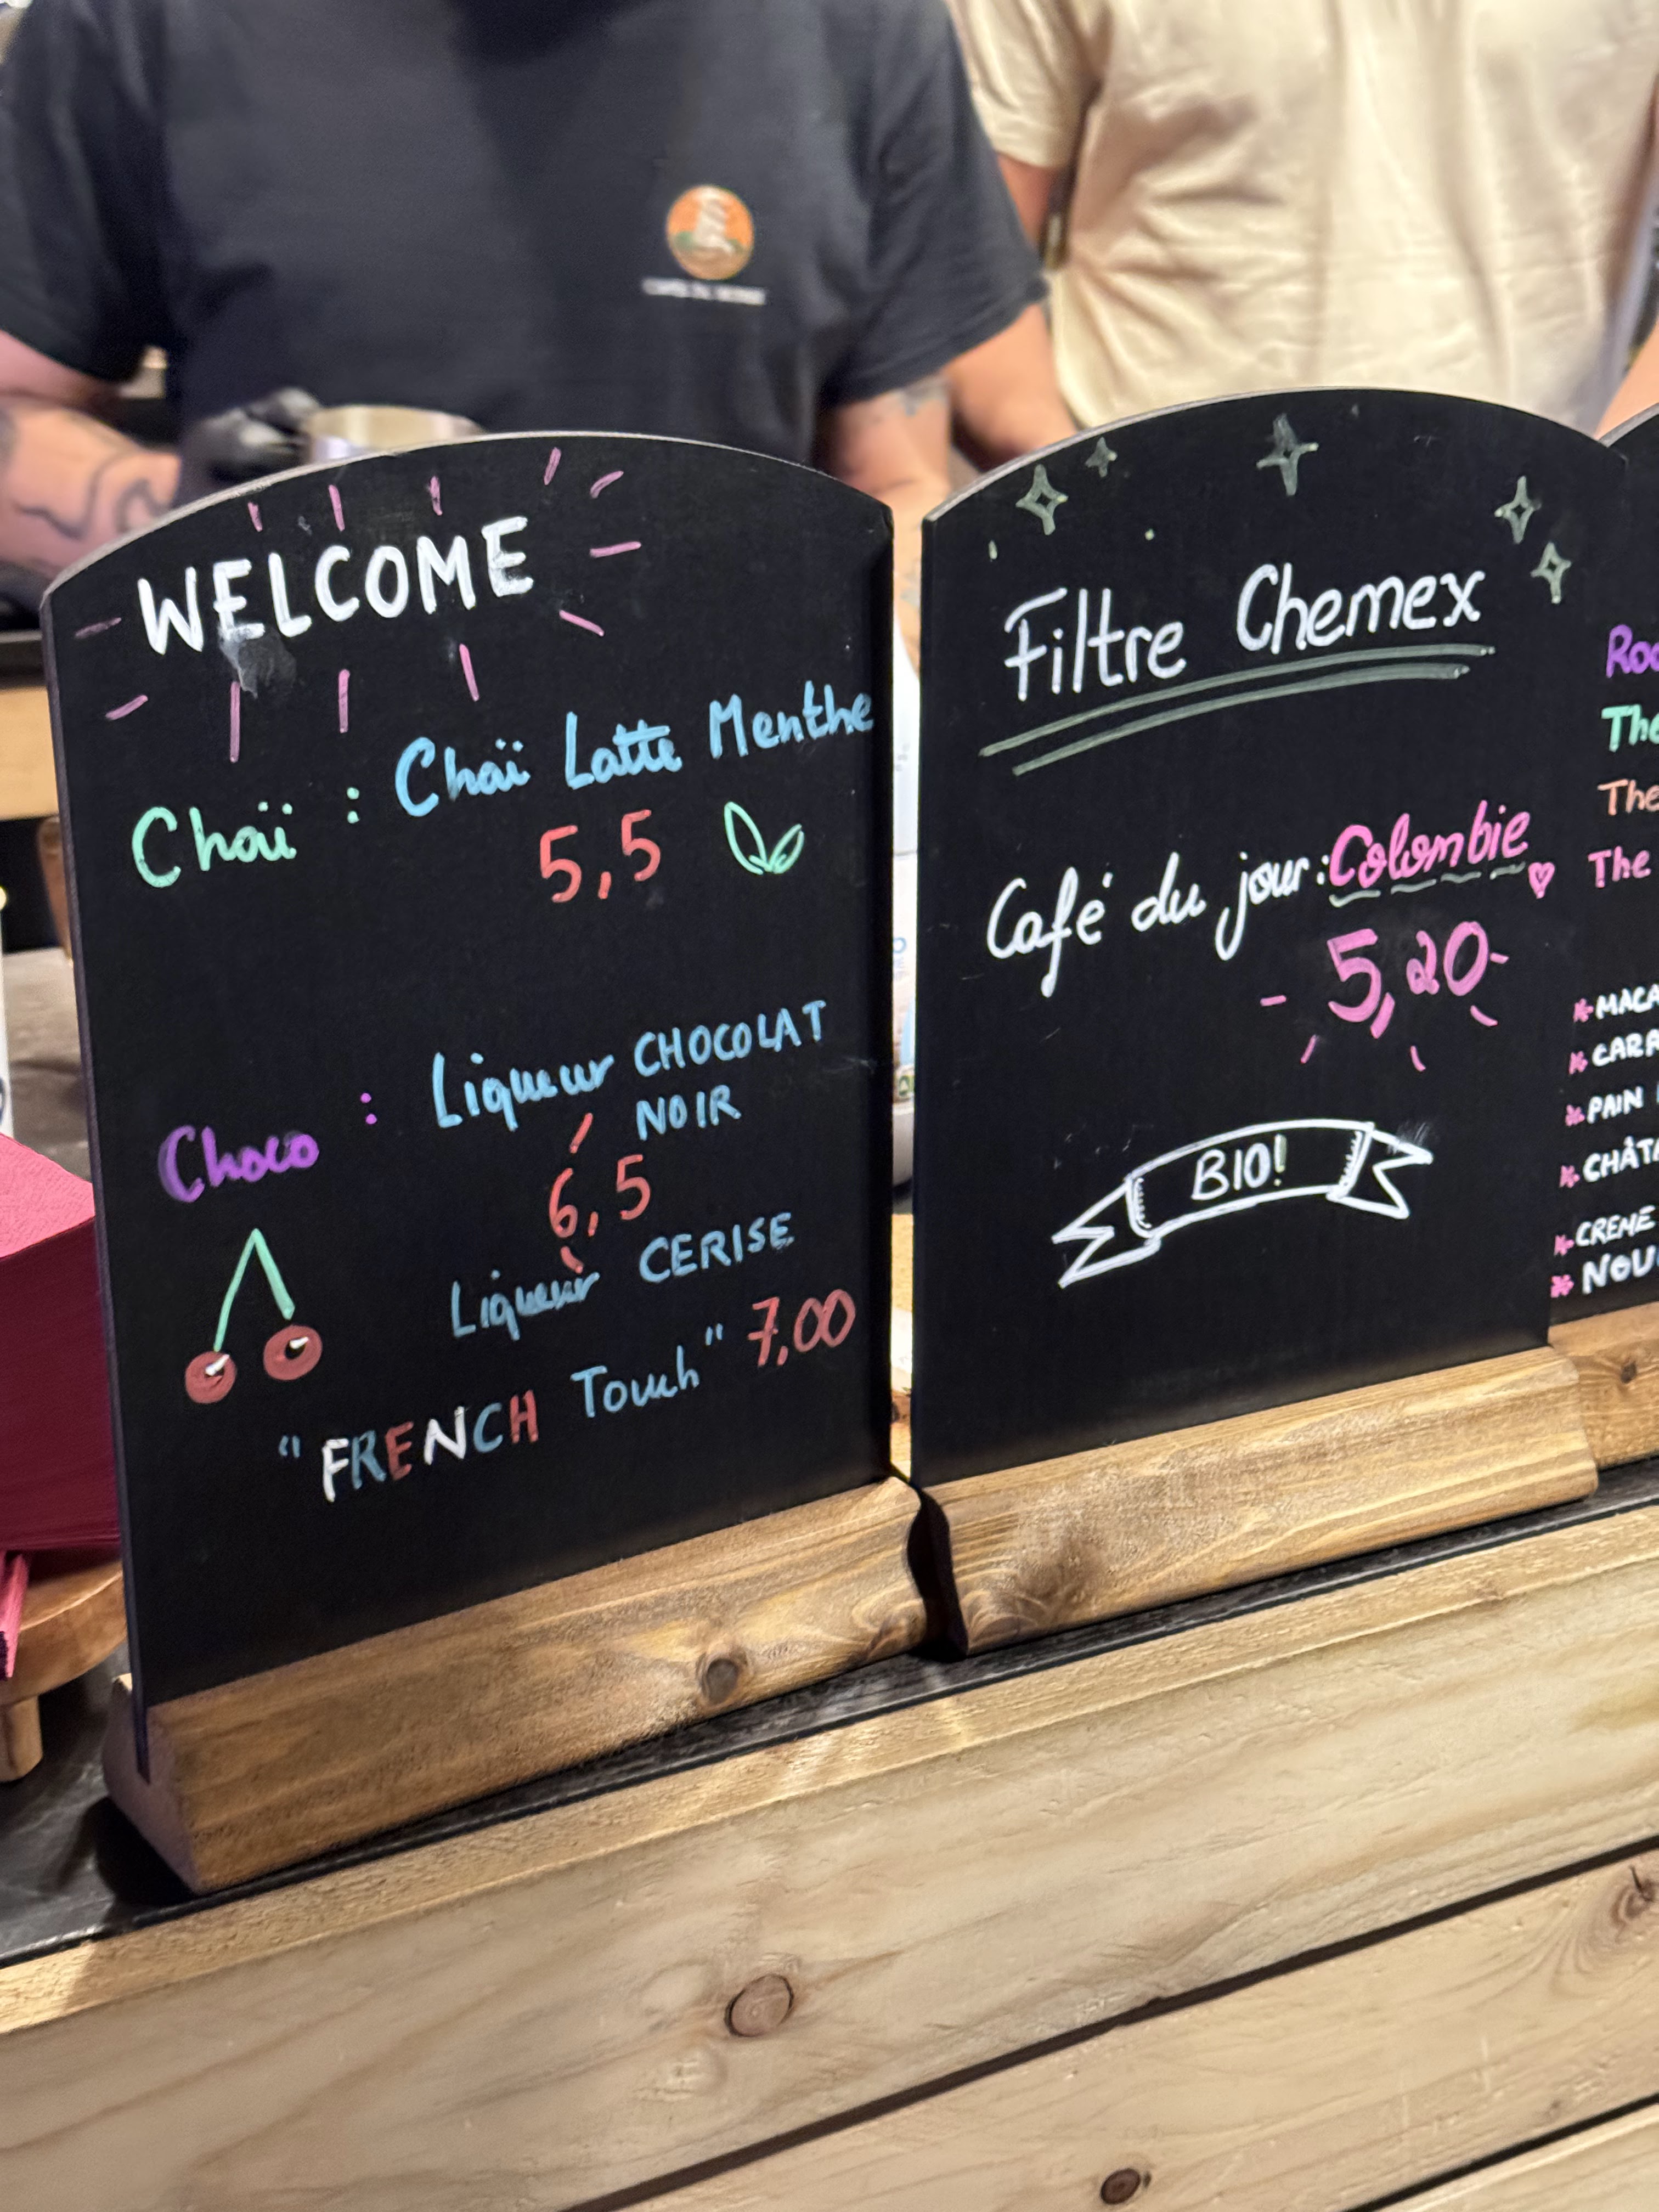 WELCOME
Chaï : Chaï Latte Menthe
5,5
Choco : Liqueur CHOCOLAT
NOIR
6,5
Liqueur CERISE
"FRENCH Touch" 7,00
Filtre Chemex
Café du jour: Colombie
5,20
BIO!
The
The
The
PAIN
CREME